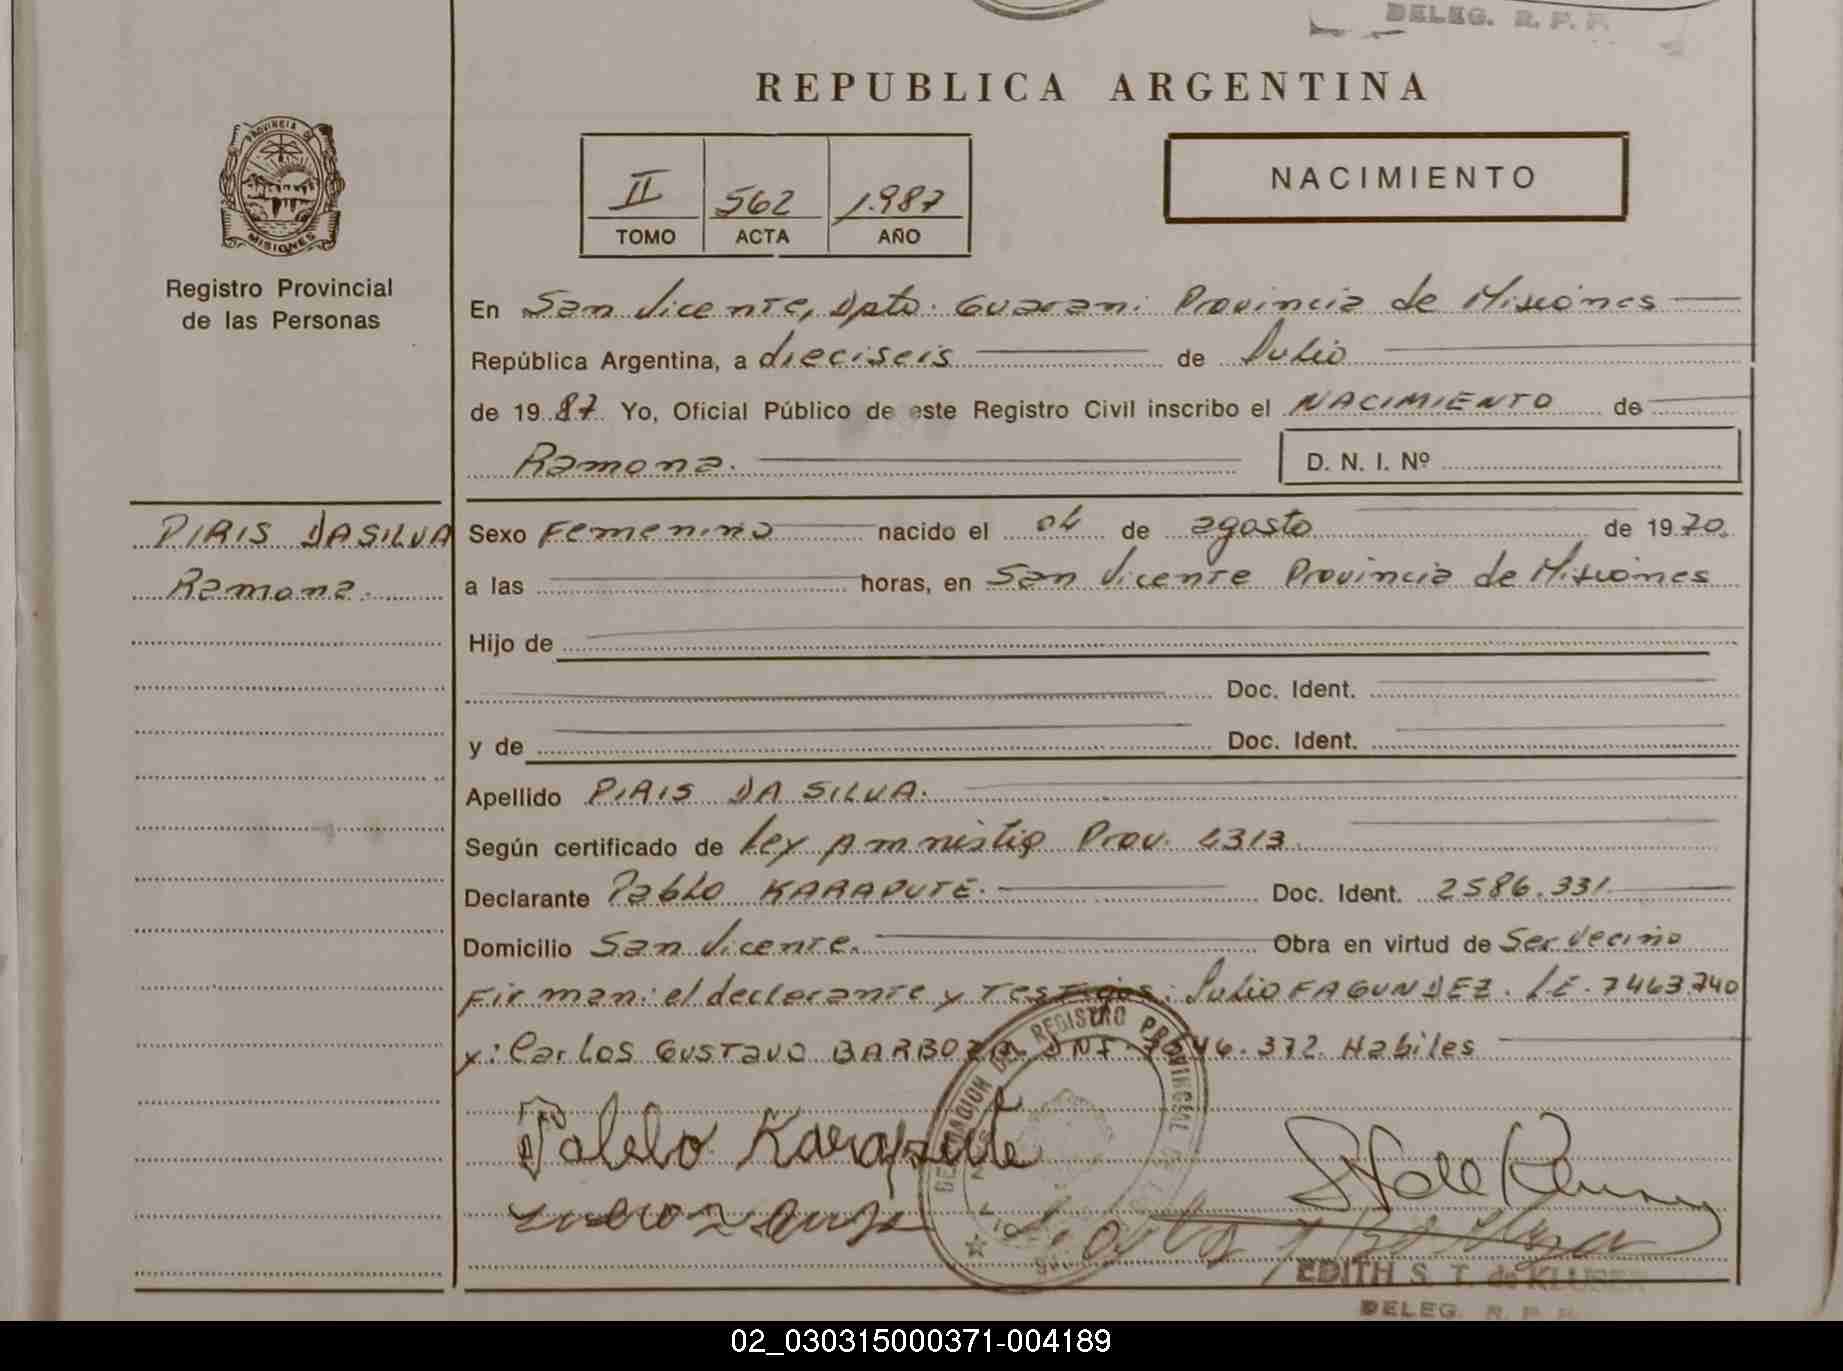 DELEG. R. P. P.
REPUBLICA ARGENTINA
PROVINCIA DE
MISIONES
Registro Provincial
de las Personas
II 562 1.987
TOMO ACTA AÑO
NACIMIENTO
En San Vicente, Dpto. Guarani Provincia de Misiones
República Argentina, a dieciseis de Julio
de 19 87 Yo, Oficial Público de este Registro Civil inscribo el NACIMIENTO de
Ramona.
D. N. I. Nº
PIRIS DA SILVA
Ramona.
Sexo Femenino nacido el 04 de agosto de 1970.
a las horas, en San Vicente Provincia de Misiones
Hijo de
Doc. Ident.
y de Doc. Ident.
Apellido PIRIS DA SILVA.
Según certificado de Ley Amnistia Prov. 2313.
Declarante Pablo KARAPUTE. Doc. Ident. 2586.331
Domicilio San Vicente. Obra en virtud de Ser vecino
Firman: el declarante y Testigos: Julio FAGUNDEZ. LE. 7463.740
y: Carlos GUSTAVO BARBOZA DNI 46.372 Habiles
DEL REGISTRO PROVINCIAL
Pablo Karapute
EDITH S. T. de KLUSER
DELEG. R. P. P.
02_030315000371-004189